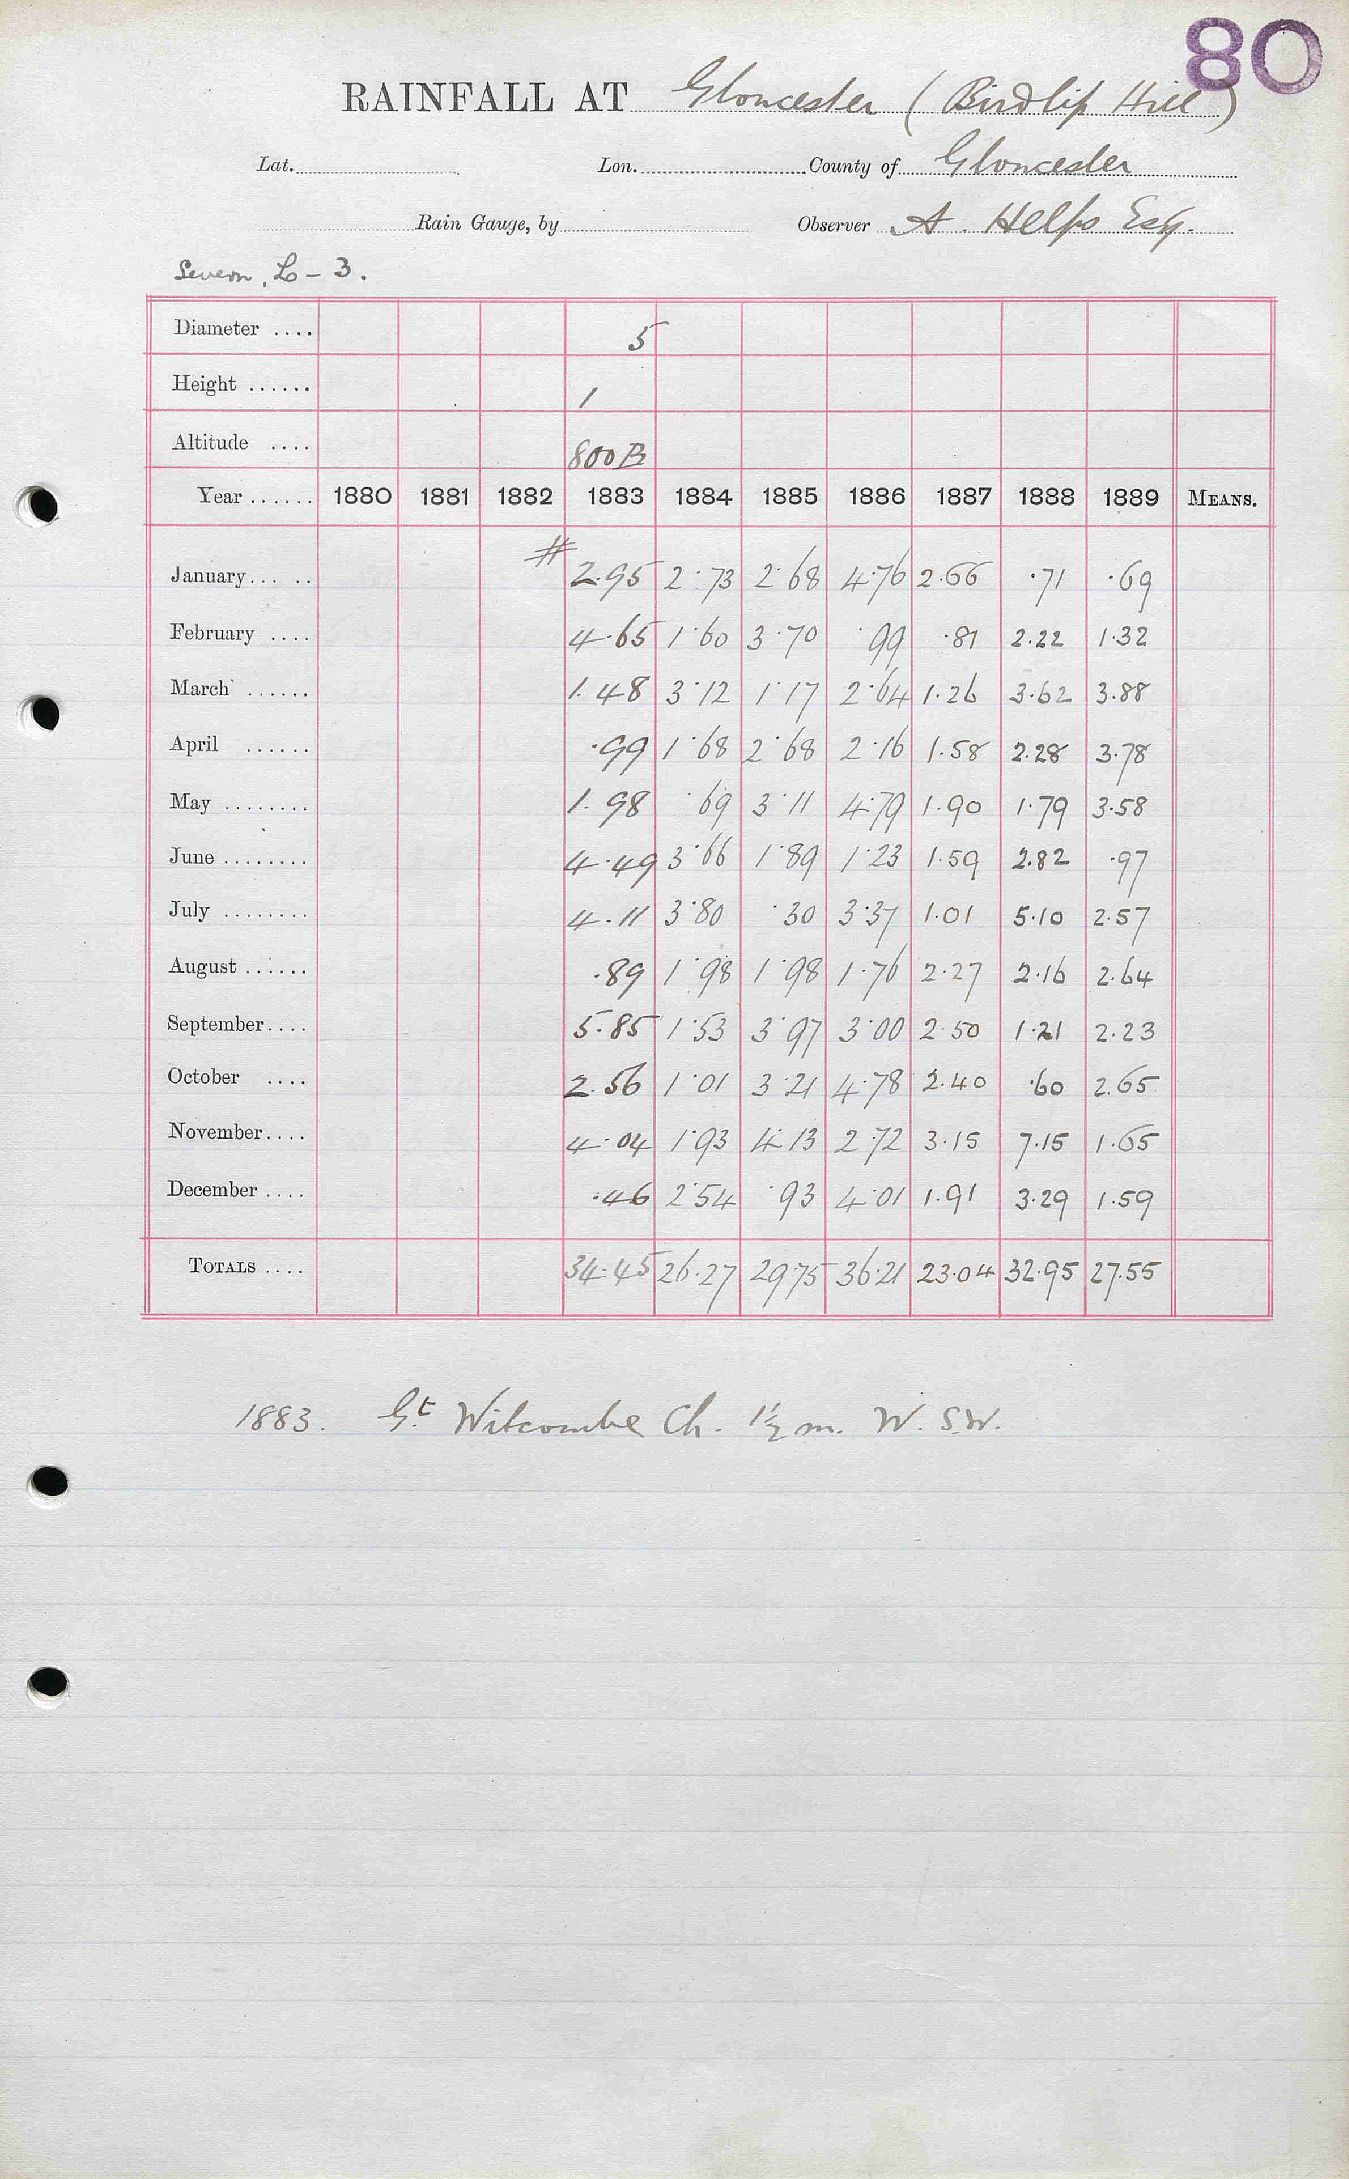 80
RAINFALL AT Gloucester (Birdlip Hill)
Lat. Lon. County of Gloucester
Rain Gauge, by Observer A. Helps Esq.
Severn, L - 3.
Diameter .... 5
Height ...... 1
Altitude .... 800 B
Year ...... 1880 1881 1882 1883 1884 1885 1886 1887 1888 1889 MEANS.
January... .. # 2.95 2.73 2.68 4.76 2.66 .71 .69
February .... 4.65 1.60 3.70 .99 .81 2.22 1.32
March ...... 1.48 3.12 1.17 2.64 1.26 3.62 3.88
April ...... .99 1.68 2.68 2.16 1.58 2.28 3.78
May ........ 1.98 .69 3.11 4.79 1.90 1.79 3.58
June ........ 4.49 3.66 1.89 1.23 1.59 2.82 .97
July ........ 4.11 3.80 .30 3.37 1.01 5.10 2.57
August ...... .89 1.98 1.98 1.76 2.27 2.16 2.64
September.... 5.85 1.53 3.97 3.00 2.50 1.21 2.23
October .... 2.56 1.01 3.21 4.78 2.40 .60 2.65
November.... 4.04 1.93 4.13 2.72 3.15 7.15 1.65
December .... .46 2.54 .93 4.01 1.91 3.29 1.59
TOTALS .... 34.45 26.27 29.75 36.21 23.04 32.95 27.55
1883. Gt Witcombe Ch. 1½ m. W.S.W.